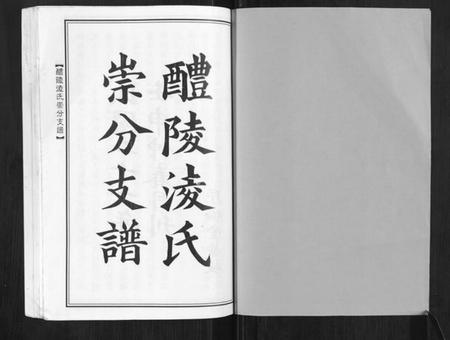 醴陵淩氏
崇分支譜
【醴陵淩氏崇分支譜】